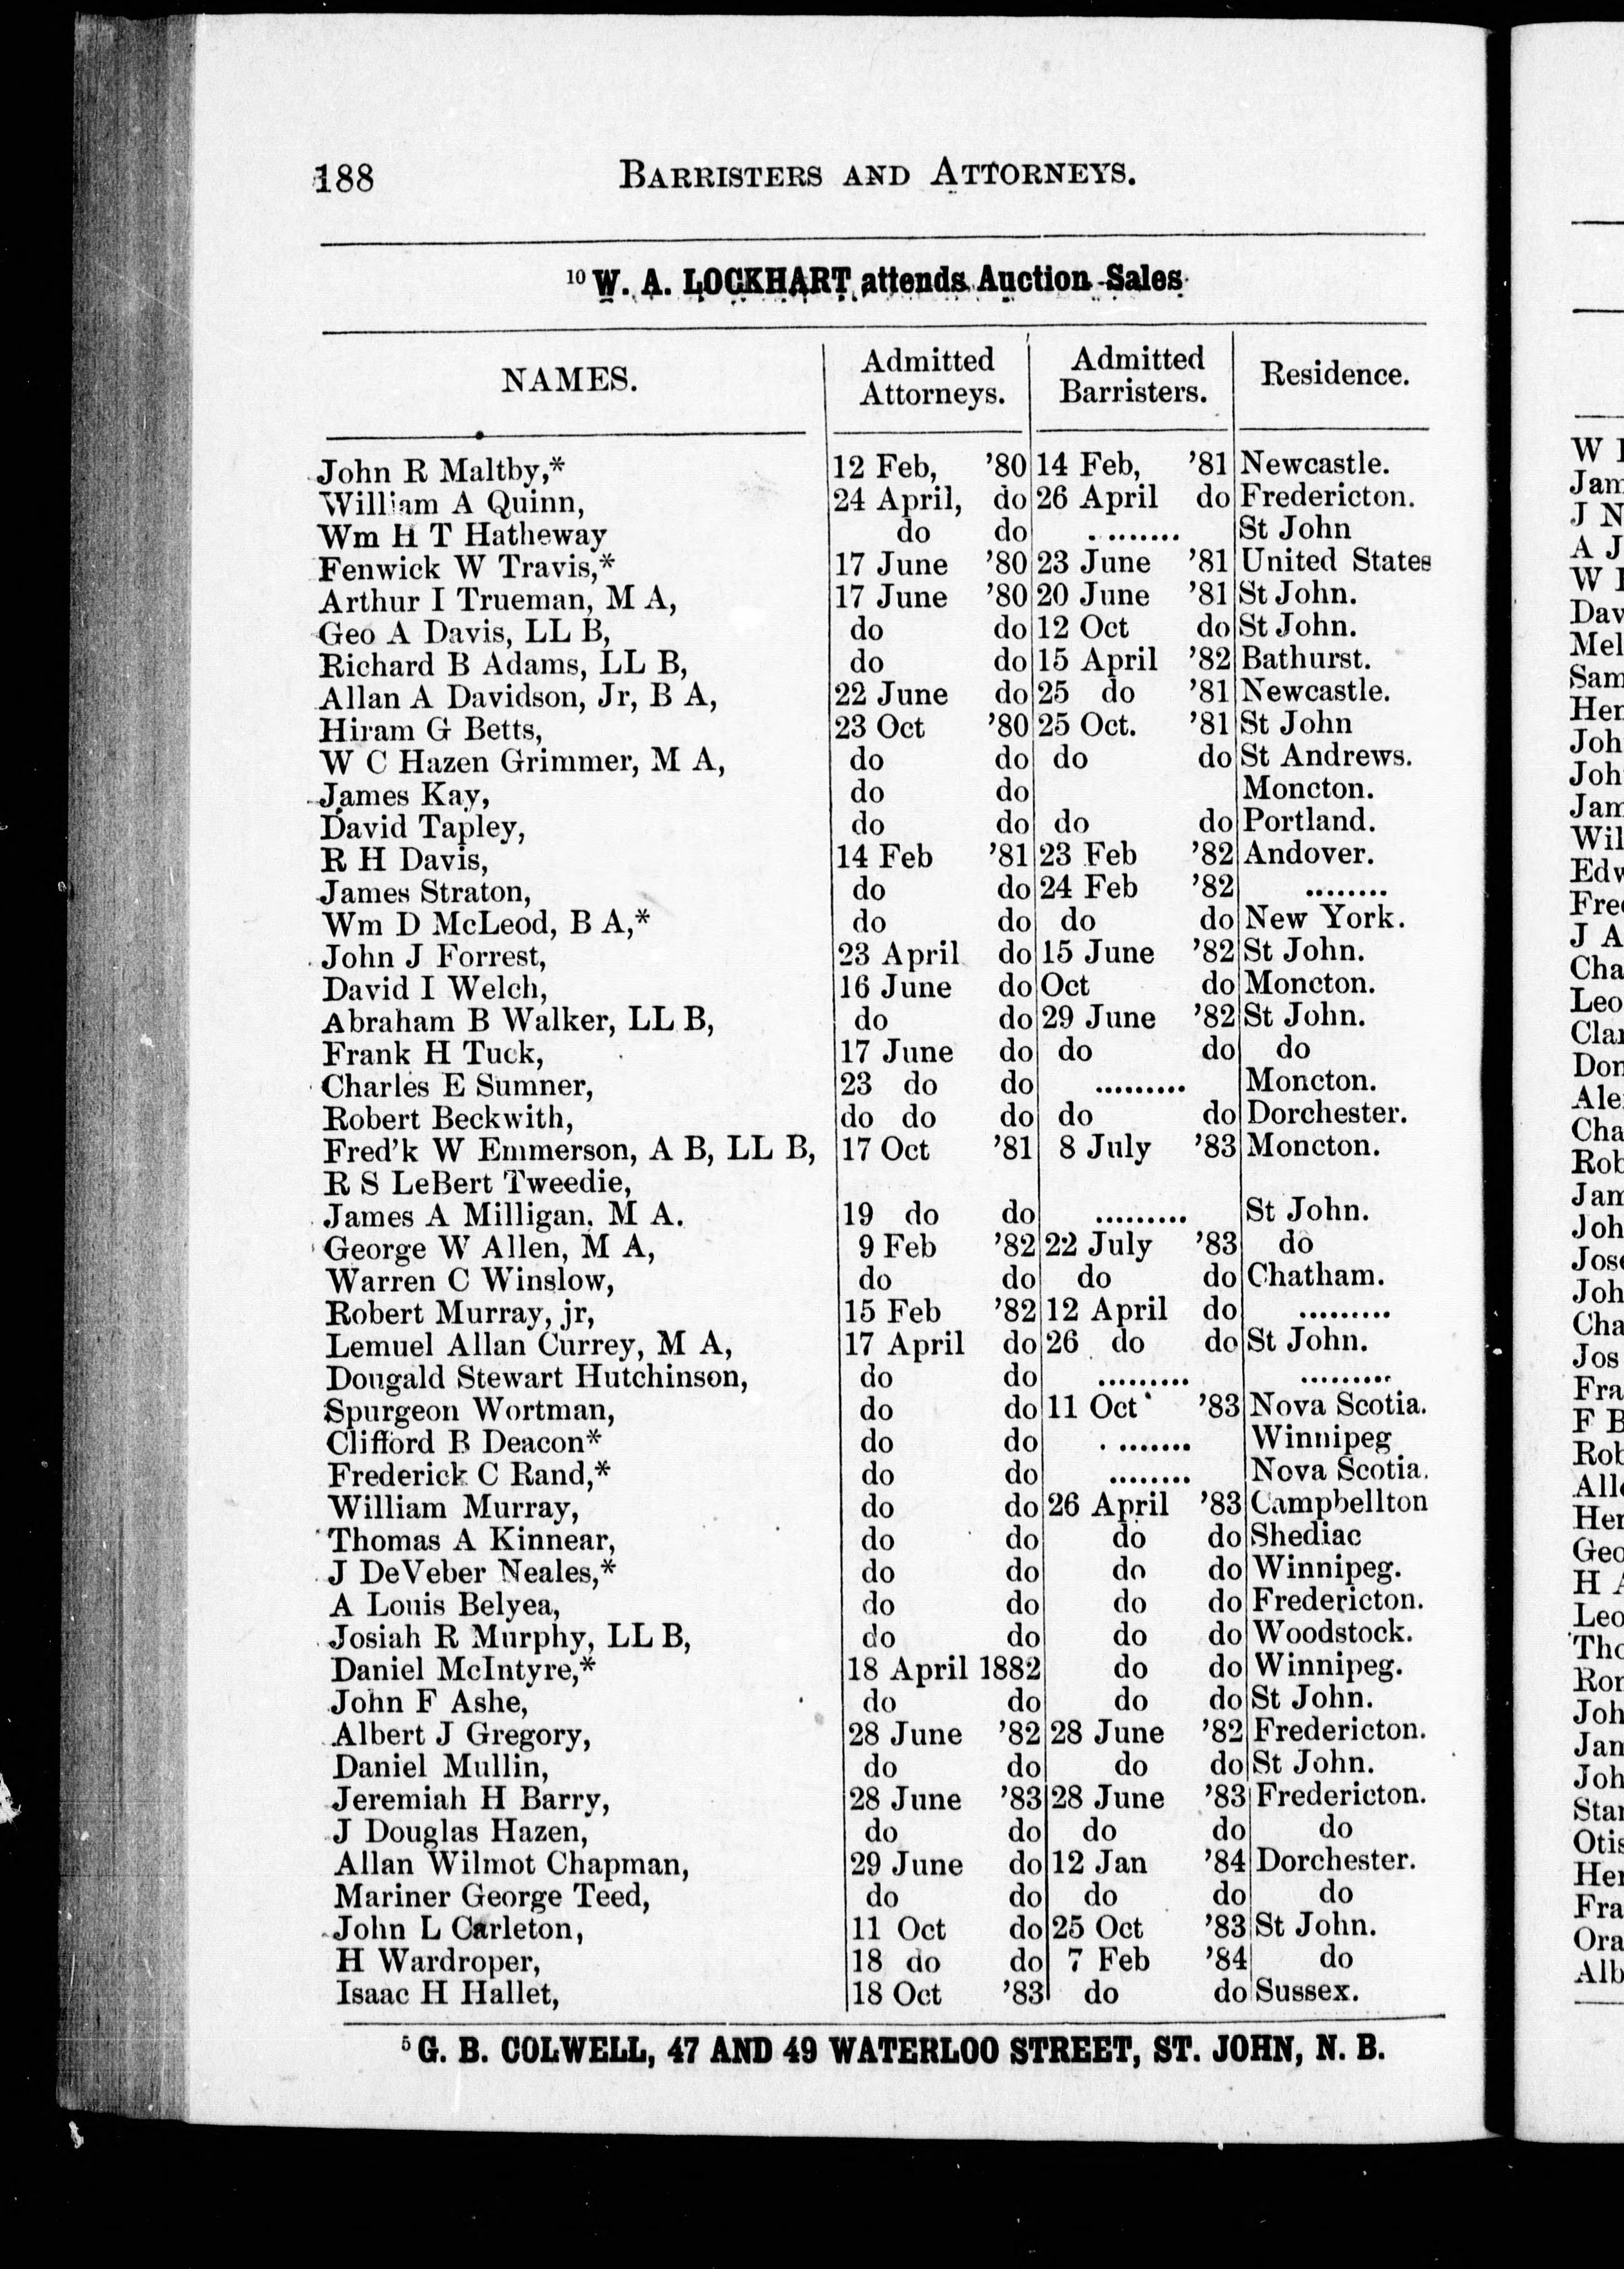 188 BARRISTERS AND ATTORNEYS.
10 W. A. LOCKHART attends Auction Sales
NAMES. Admitted Attorneys. Admitted Barristers. Residence.
John R Maltby,* 12 Feb, '80 14 Feb, '81 Newcastle.
William A Quinn, 24 April, do 26 April do Fredericton.
Wm H T Hatheway do do ......... St John
Fenwick W Travis,* 17 June '80 23 June '81 United States
Arthur I Trueman, M A, 17 June '80 20 June '81 St John.
Geo A Davis, LL B, do do 12 Oct do St John.
Richard B Adams, LL B, do do 15 April '82 Bathurst.
Allan A Davidson, Jr, B A, 22 June do 25 do '81 Newcastle.
Hiram G Betts, 23 Oct '80 25 Oct. '81 St John
W C Hazen Grimmer, M A, do do do do St Andrews.
James Kay, do do Moncton.
David Tapley, do do do do Portland.
R H Davis, 14 Feb '81 23 Feb '82 Andover.
James Straton, do do 24 Feb '82 ........
Wm D McLeod, B A,* do do do do New York.
John J Forrest, 23 April do 15 June '82 St John.
David I Welch, 16 June do Oct do Moncton.
Abraham B Walker, LL B, do do 29 June '82 St John.
Frank H Tuck, 17 June do do do do
Charles E Sumner, 23 do do ......... Moncton.
Robert Beckwith, do do do do do Dorchester.
Fred'k W Emmerson, A B, LL B, 17 Oct '81 8 July '83 Moncton.
R S LeBert Tweedie,
James A Milligan. M A. 19 do do ......... St John.
George W Allen, M A, 9 Feb '82 22 July '83 do
Warren C Winslow, do do do do Chatham.
Robert Murray, jr, 15 Feb '82 12 April do .........
Lemuel Allan Currey, M A, 17 April do 26 do do St John.
Dougald Stewart Hutchinson, do do ......... .........
Spurgeon Wortman, do do 11 Oct '83 Nova Scotia.
Clifford B Deacon* do do ........ Winnipeg
Frederick C Rand,* do do ........ Nova Scotia.
William Murray, do do 26 April '83 Campbellton
Thomas A Kinnear, do do do do Shediac
J DeVeber Neales,* do do do do Winnipeg.
A Louis Belyea, do do do do Fredericton.
Josiah R Murphy, LL B, do do do do Woodstock.
Daniel McIntyre,* 18 April 1882 do do Winnipeg.
John F Ashe, do do do do St John.
Albert J Gregory, 28 June '82 28 June '82 Fredericton.
Daniel Mullin, do do do do St John.
Jeremiah H Barry, 28 June '83 28 June '83 Fredericton.
J Douglas Hazen, do do do do do
Allan Wilmot Chapman, 29 June do 12 Jan '84 Dorchester.
Mariner George Teed, do do do do do
John L Carleton, 11 Oct do 25 Oct '83 St John.
H Wardroper, 18 do do 7 Feb '84 do
Isaac H Hallet, 18 Oct '83 do do Sussex.
5 G. B. COLWELL, 47 AND 49 WATERLOO STREET, ST. JOHN, N. B.